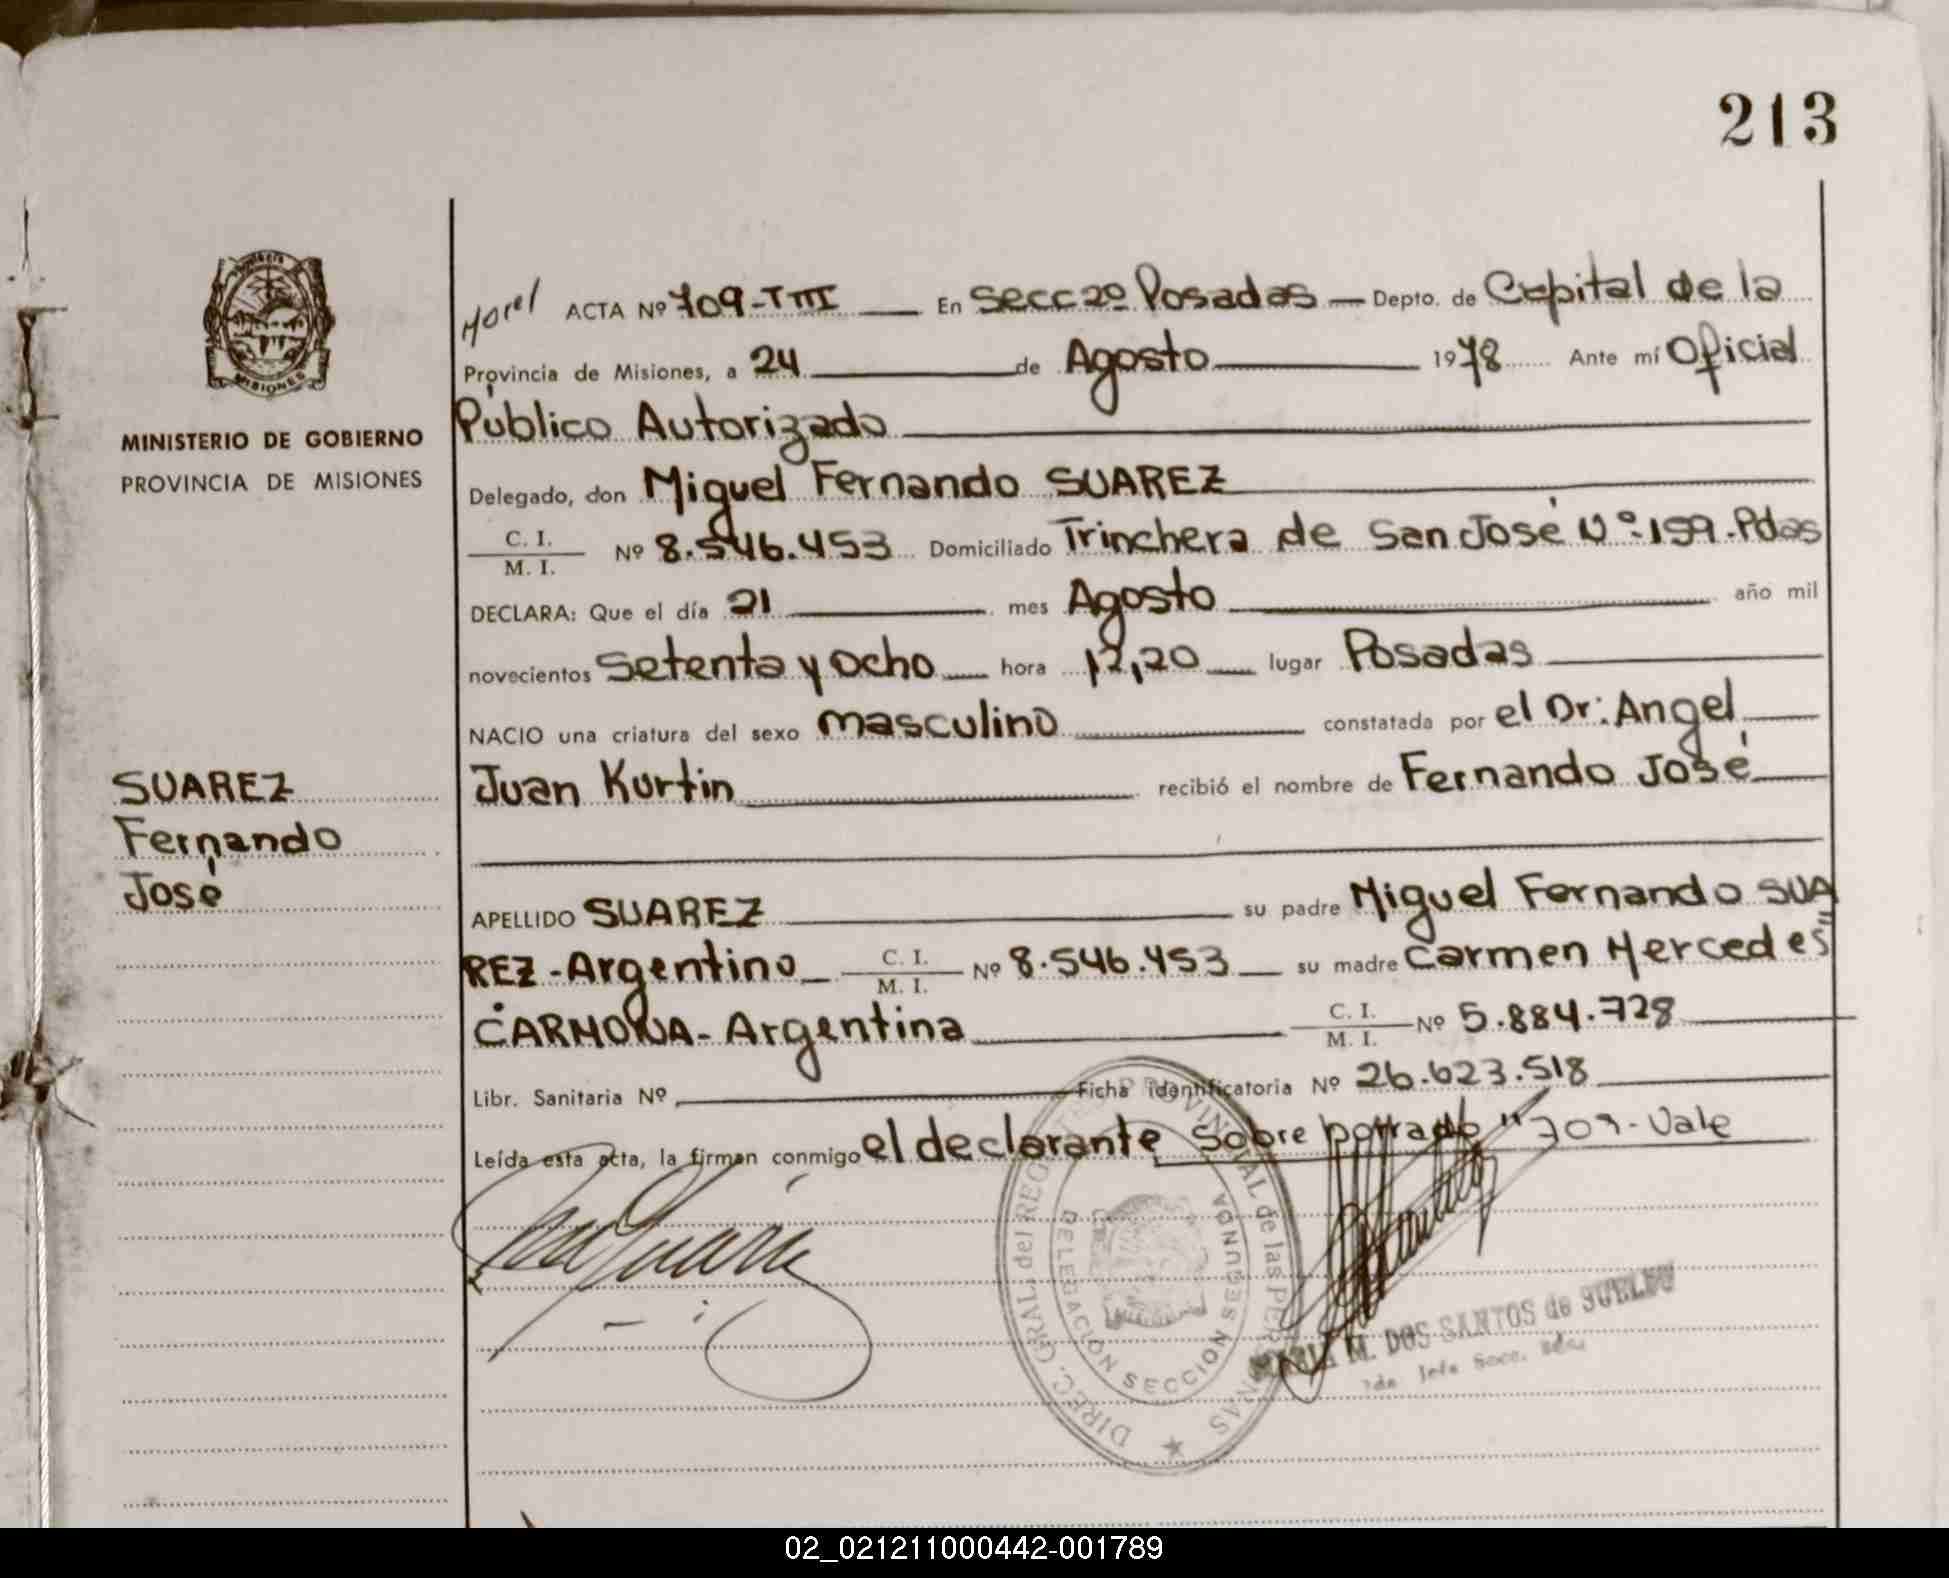 213
ACTA Nº 709-TIII En Secc 2º Posadas Depto. de Capital de la
Provincia de Misiones, a 24 de Agosto 1978 Ante mí Oficial
MISIONES
Público Autorizado
MINISTERIO DE GOBIERNO
PROVINCIA DE MISIONES
Delegado, don Miguel Fernando SUAREZ
C. I.
M. I. Nº 8.546.453 Domiciliado Trinchera de San José Nº:159.Pdas
DECLARA: Que el día 21 mes Agosto año mil
novecientos setenta y ocho hora 12,20 lugar Posadas
NACIO una criatura del sexo masculino constatada por el Dr: Angel
Juan Kurtin recibió el nombre de Fernando José
SUAREZ
Fernando
José
APELLIDO SUAREZ su padre Miguel Fernando SUA
REZ - Argentino C. I.
M. I. Nº 8.546.453 su madre Carmen Mercedes
CARMONA - Argentina C. I.
M. I. Nº 5.884.728
Libr. Sanitaria Nº Ficha identificatoria Nº 26.623.518
Leída esta acta, la firman conmigo el declarante Sobre borrado "709 - Vale
DIREC. GRAL. del REG. PROVINCIAL de las PERSONAS
DELEGACIÓN SECCION SEGUNDA
MARIA M. DOS SANTOS de SUELDO
Jefe Secc.
02_021211000442-001789